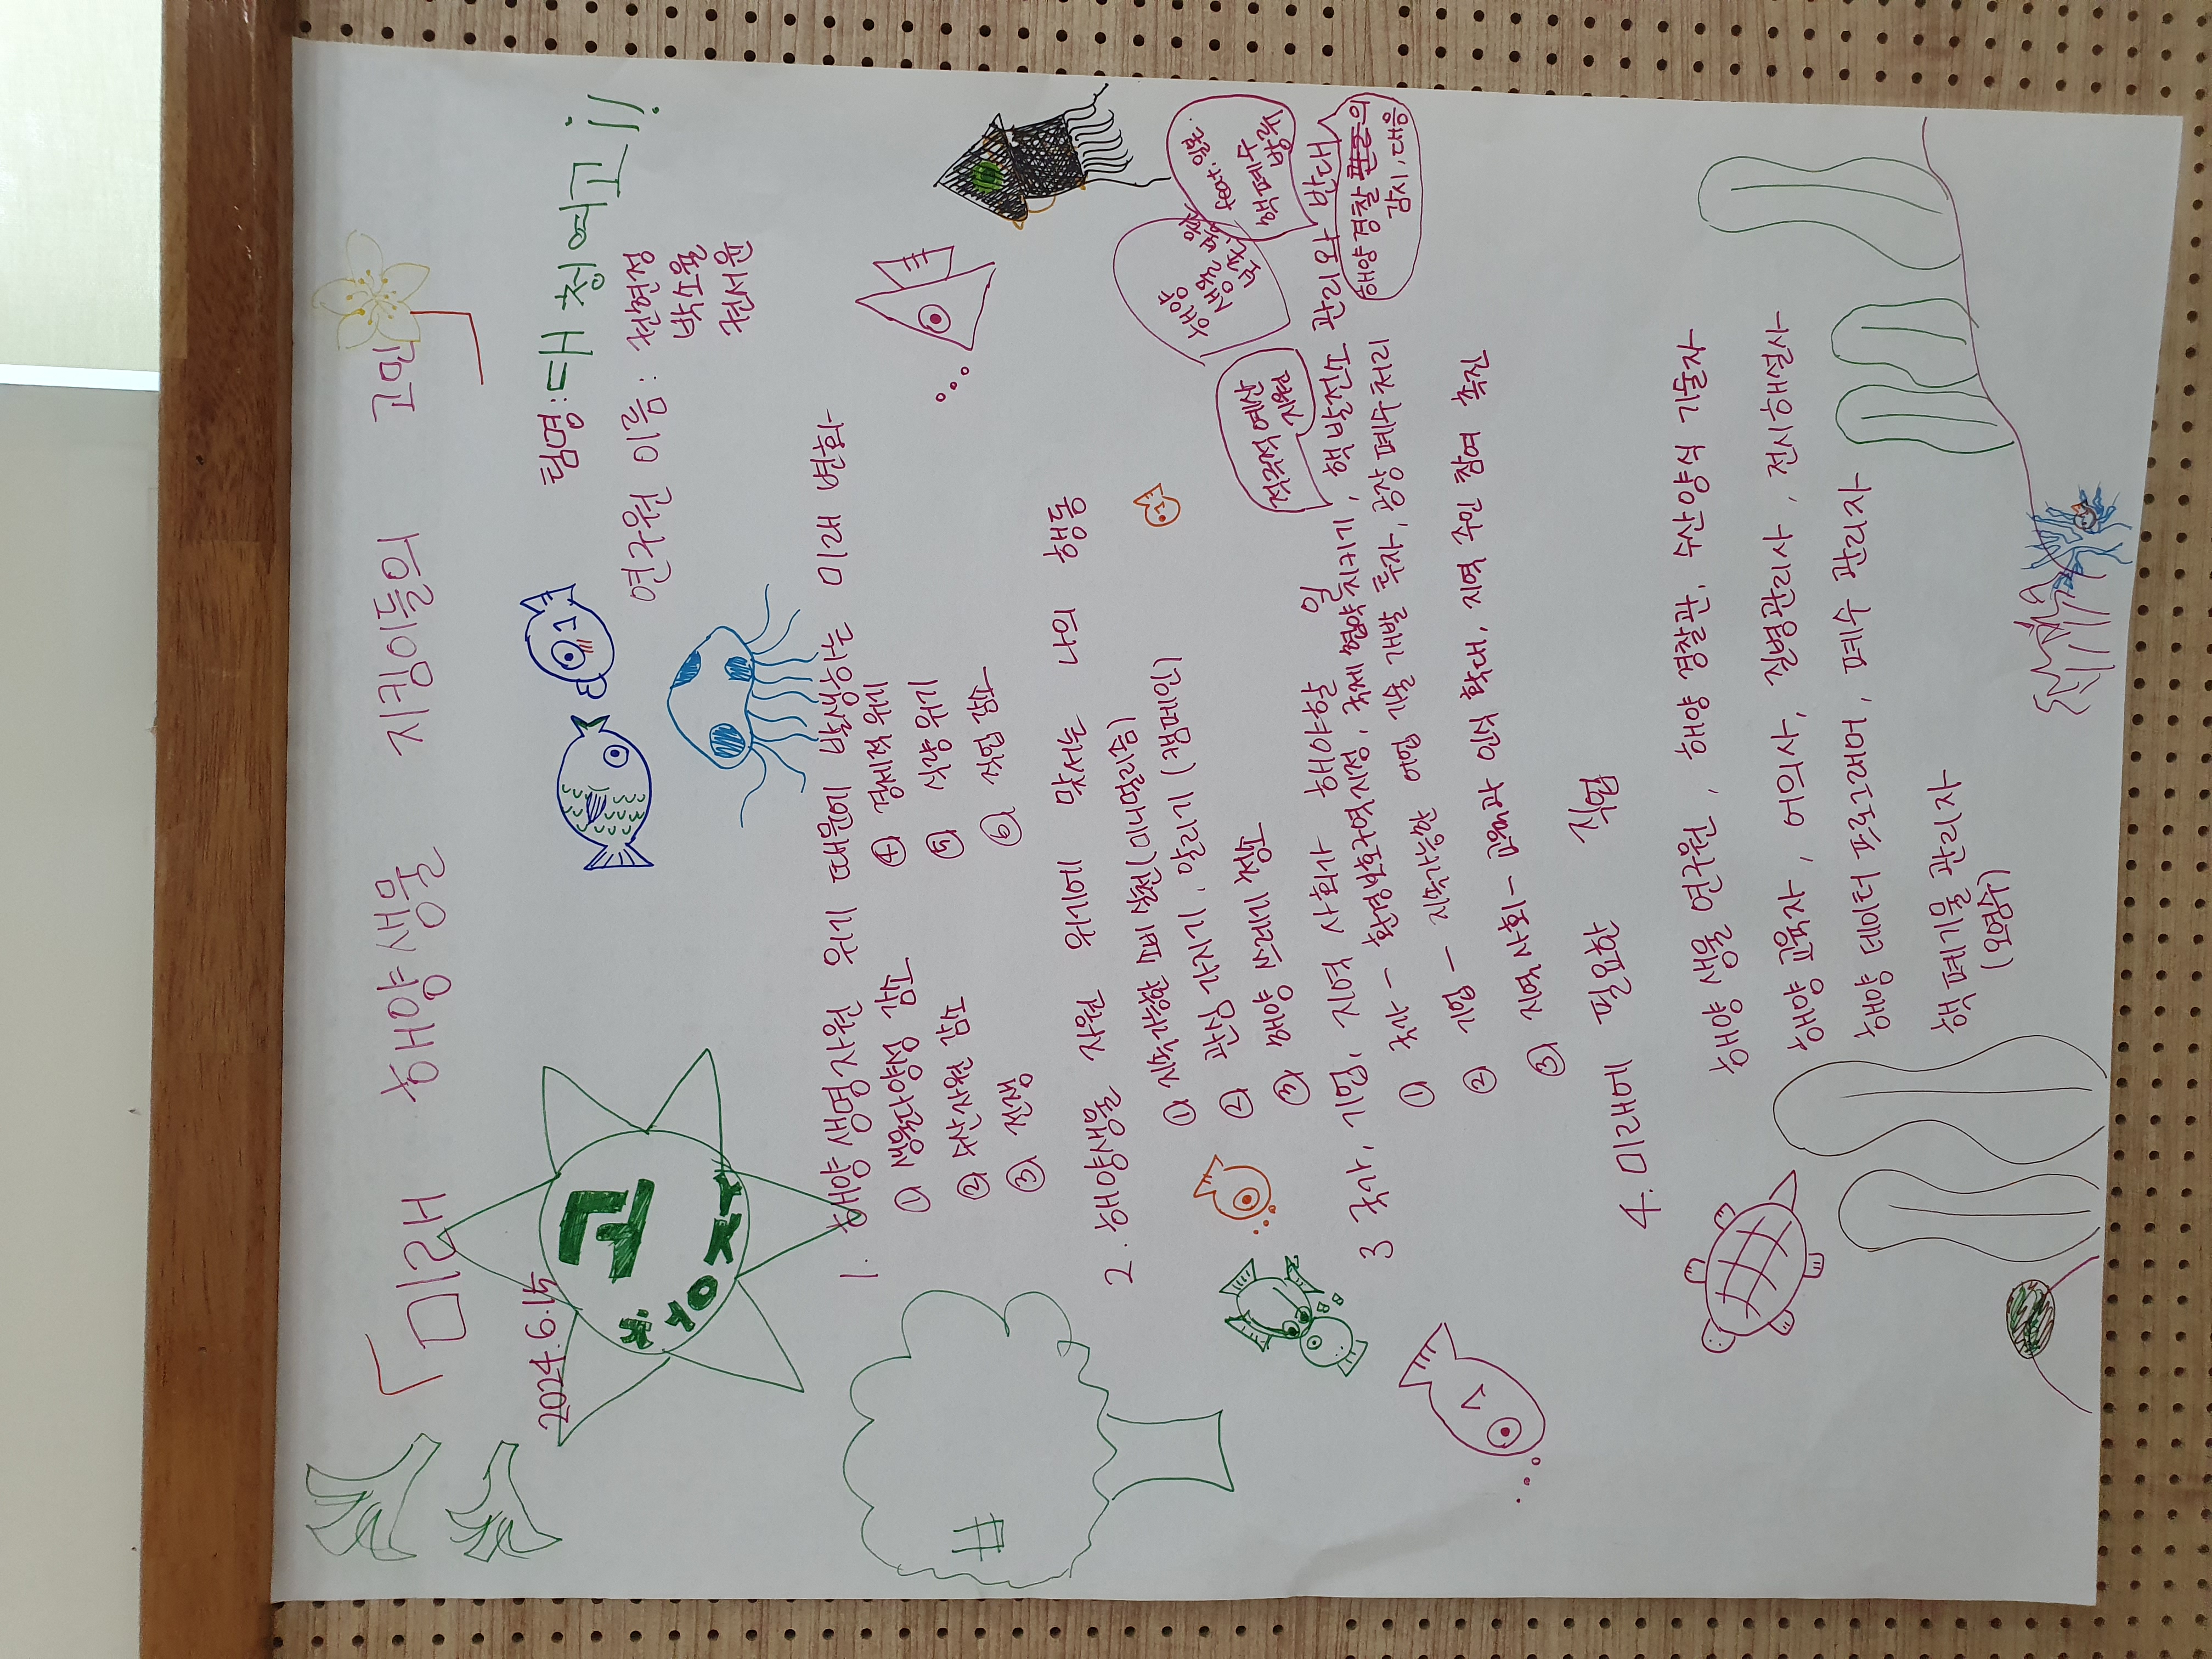 「미래 해양생물 지킴이들의 고민」
2024.6.15
고
팀명:대청여고!!
연구원 이름: 권현정
박소율
권서윤
1. 해양생명자원 위기 때문에 발생하는 미래 변화
① 생물다양성 감소
② 수산자원 감소
③ 전쟁
④ 경제적 위기
⑤ 식량 위기
⑥ 직업 감소
#
2. 해양생물 자원 위기에 맞서는 나의 행동
① 지속가능한 소비 실천(미니멀리즘)
② 관심 가지기, 알리기 (캠페인)
③ 해양 쓰레기 청소
3 국가, 기업, 지역 사회가 해야할 일
적극적 예산
지원
해양
생물 복원
보존,
feat.일본.
핵폐수
방류
① 국가 - 환경보호구역지정, 국제 협약 지키기, 핵발전소 관리와 반대
해양경찰 의
감시, 대응
② 기업 - 지속가능한 어업 기술 개발 투자, 공장 폐수처리
③ 지역사회 - 교육과 인식 확대, 지역 주민 참여 촉진
4. 미래에 필요한 직업
해양 생물 연구원, 해양 경찰관, 수산양식 기술자
해양교육자, 어의사, 질병관리사, 전시해설사
해양 데이터 프로그래머, 폐수 관리자
핵 폐기물 관리자
(오염수)